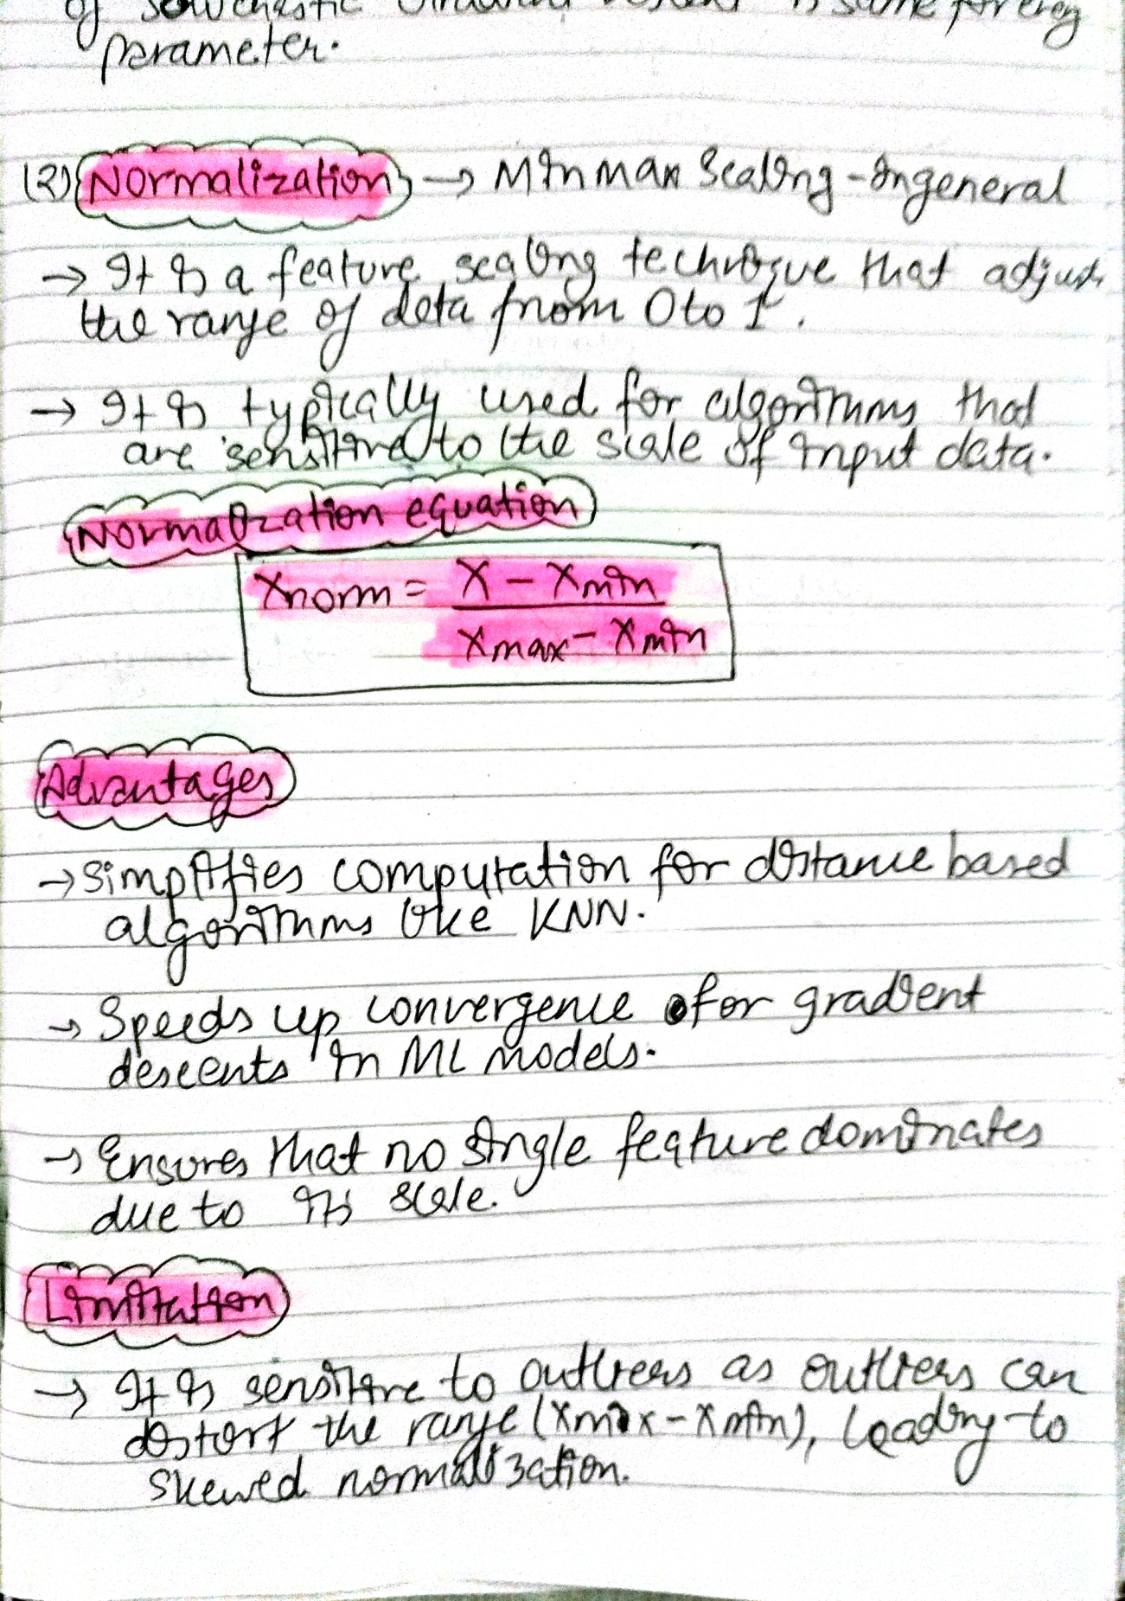 of Stochastic Gradient Descent is same for every
parameter.
(2) Normalization → Min max Scaling - In general
→ It is a feature scaling technique that adjust
the range of data from 0 to 1.
→ It is typically used for algorithms that
are sensitive to the scale of input data.
Normalization equation
Xnorm = X - Xmin
Xmax - Xmin
Advantages
→ Simplifies computation for distance based
algorithms like KNN.
→ Speeds up convergence for gradient
descents in ML models.
→ Ensures that no single feature dominates
due to its scale.
Limitation
→ It is sensitive to outliers as outliers can
distort the range (Xmax - Xmin), leading to
skewed normalization.